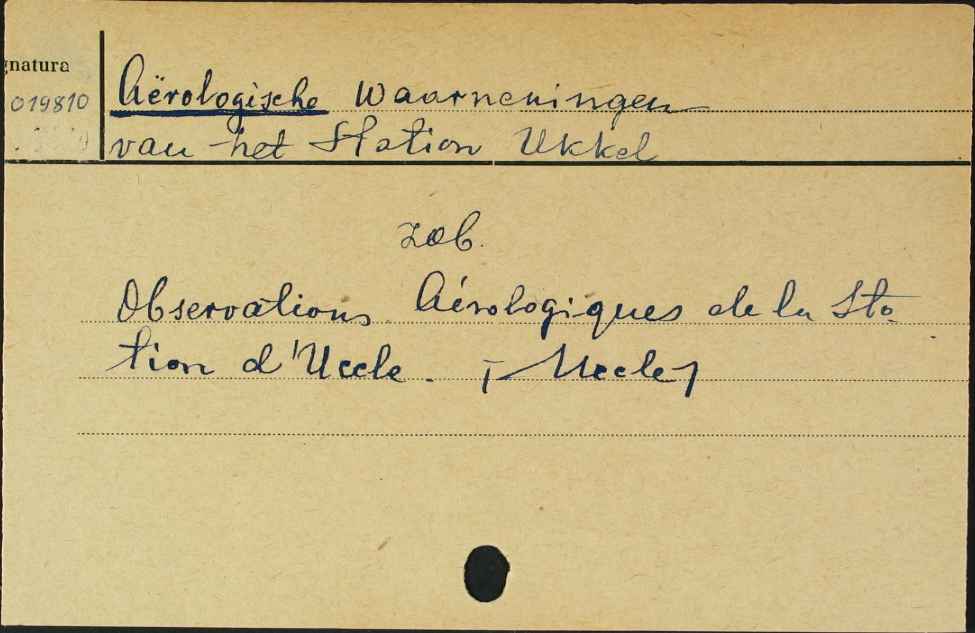 gnatura
019810
Aërologische Waarneningen
van het Station Ukkel
zob.
Observations Aérologiques de la Sta-
tion d'Uccle. [Uccle]